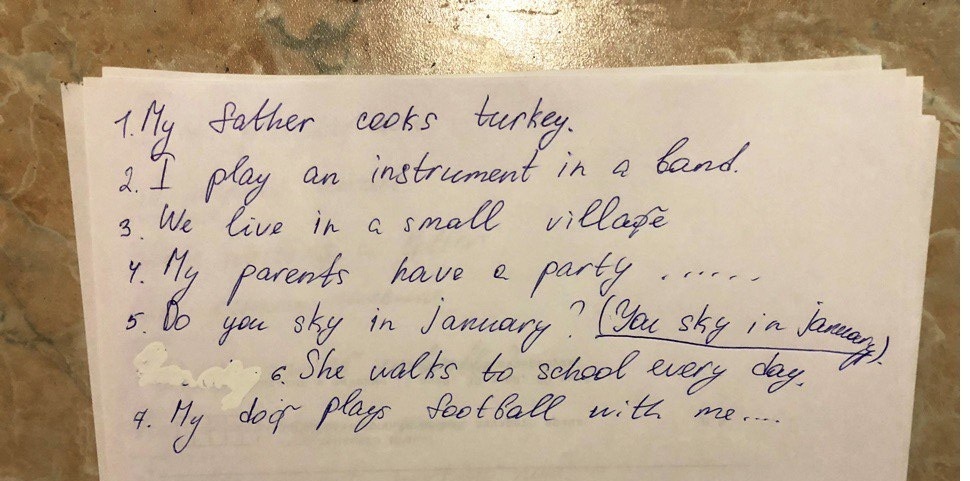 1. My father cooks turkey.
2. I play an instrument in a band.
3. We live in a small village
4. My parents have a party .......
5. Do you sky in january? (You sky in january).
6. She walks to school every day.
7. My dog plays football with me....